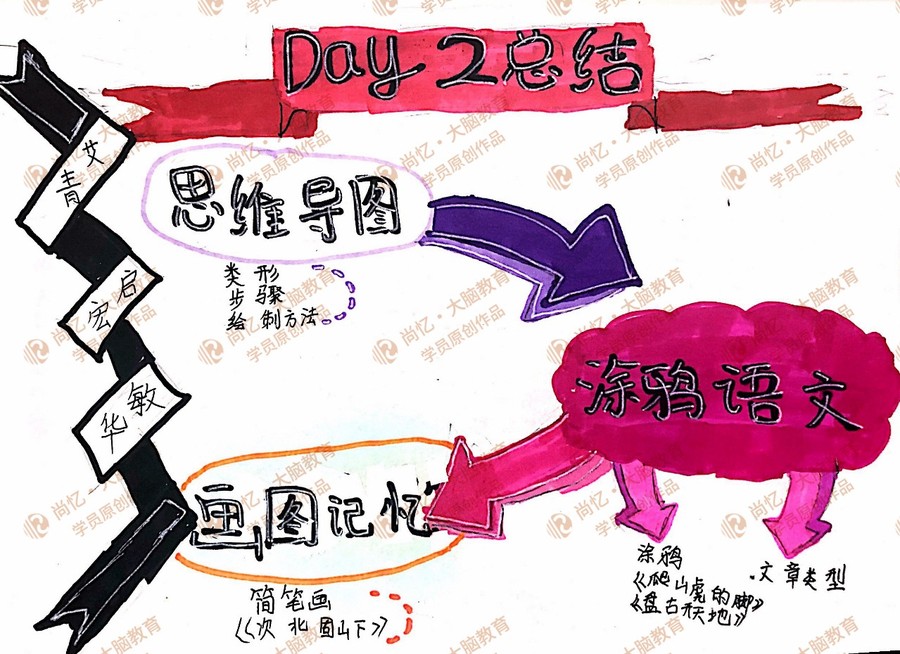 Day 2总结
艾青
启宏
敏华
思维导图
类形
步骤
绘制方法
涂鸦语文
涂鸦
《爬山虎的脚》
《盘古开天地》
文章类型
画图记忆
简笔画
《次北固山下》
尚忆·大脑教育
学员原创作品